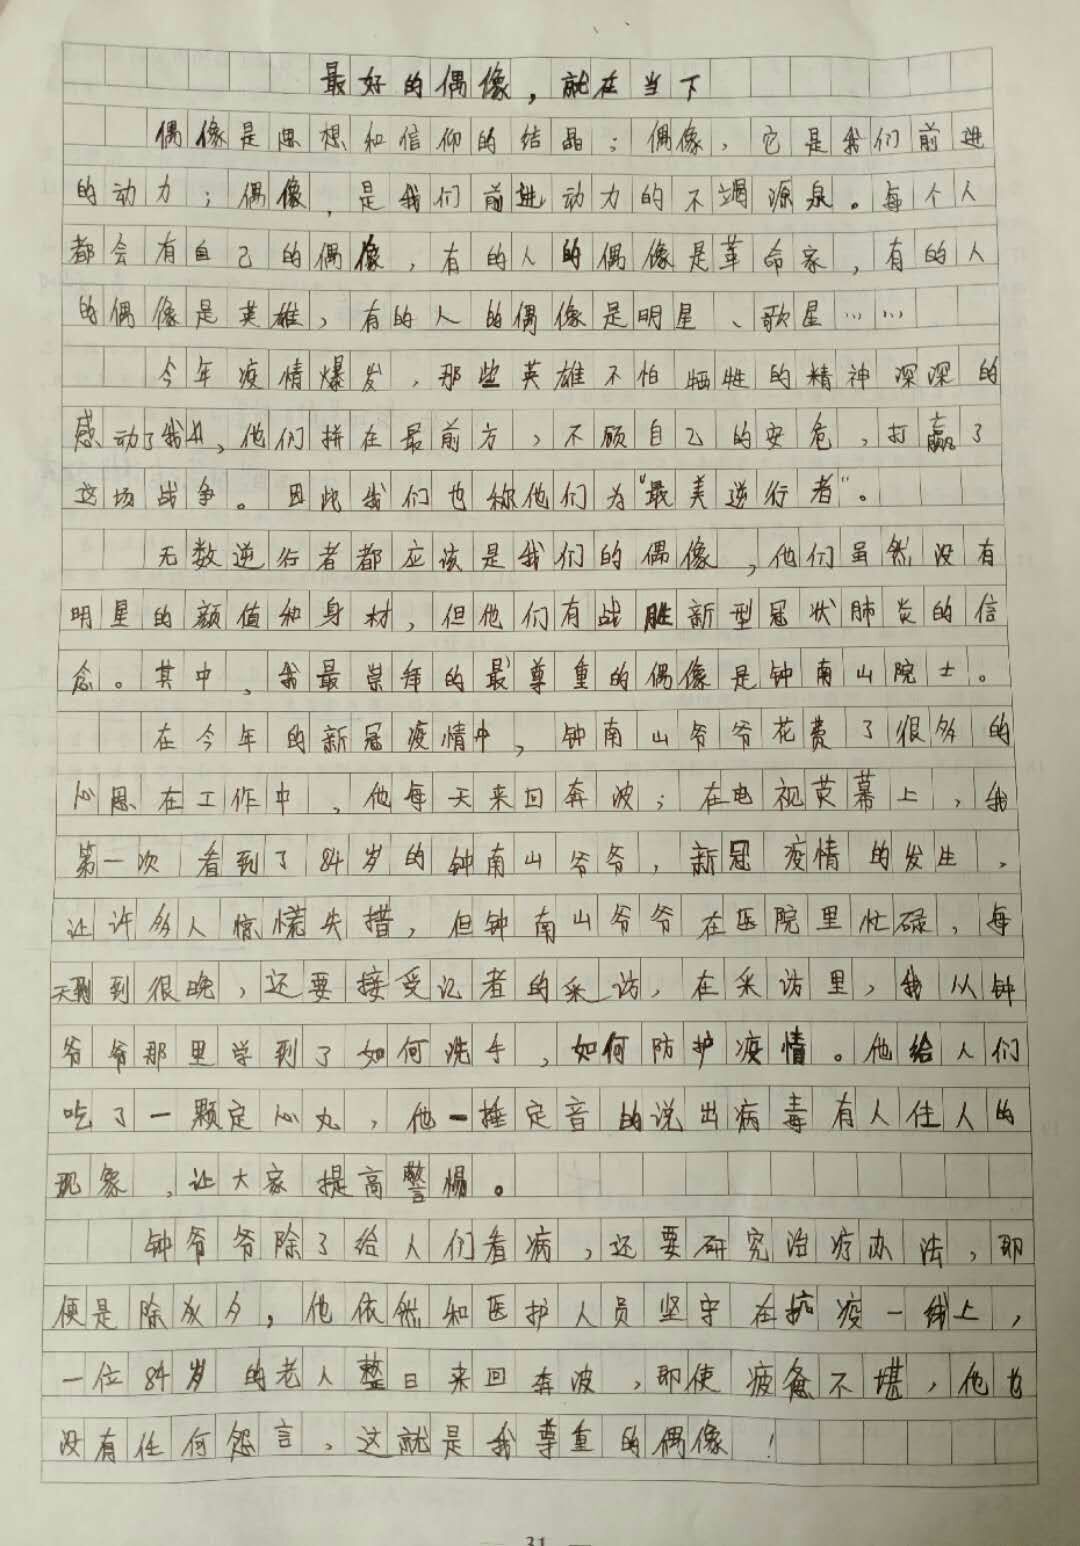 最好的偶像，就在当下
偶像是思想和信仰的结晶；偶像，它是我们前进
的动力；偶像，是我们前进动力的不竭源泉。每个人
都会有自己的偶像，有的人的偶像是革命家，有的人
的偶像是英雄，有的人的偶像是明星、歌星……
今年疫情爆发，那些英雄不怕牺牲的精神深深的
感动了我，他们拼在最前方，不顾自己的安危，打赢了
这场战争。因此我们也称他们为“最美逆行者”。
无数逆行者都应该是我们的偶像，他们虽然没有
明星的颜值和身材，但他们有战胜新型冠状肺炎的信
念。其中，我最崇拜的最尊重的偶像是钟南山院士。
在今年的新冠疫情中，钟南山爷爷花费了很多的
心思在工作中，他每天来回奔波；在电视荧幕上，我
第一次看到了84岁的钟南山爷爷，新冠疫情的发生，
让许多人惊慌失措，但钟南山爷爷在医院里忙碌，每
天到很晚，还要接受记者的采访，在采访里，我从钟
爷爷那里学到了如何洗手，如何防护疫情。他给人们
吃了一颗定心丸，他一捶定音的说出病毒有人住人的
现象，让大家提高警惕。
钟爷爷除了给人们看病，还要研究治疗办法，即
便是除夕夕，他依然和医护人员坚守在抗疫一线上，
一位84岁的老人整日来回奔波，即使疲惫不堪，他也
没有任何怨言，这就是我尊重的偶像！
31